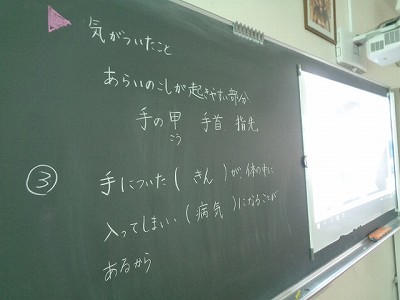 気がついたこと
あらいのこしが起きやすい部分
手の甲 手首 指先
こう
③ 手についた(きん)が、体の中に
入ってしまい(病気)になることが
あるから